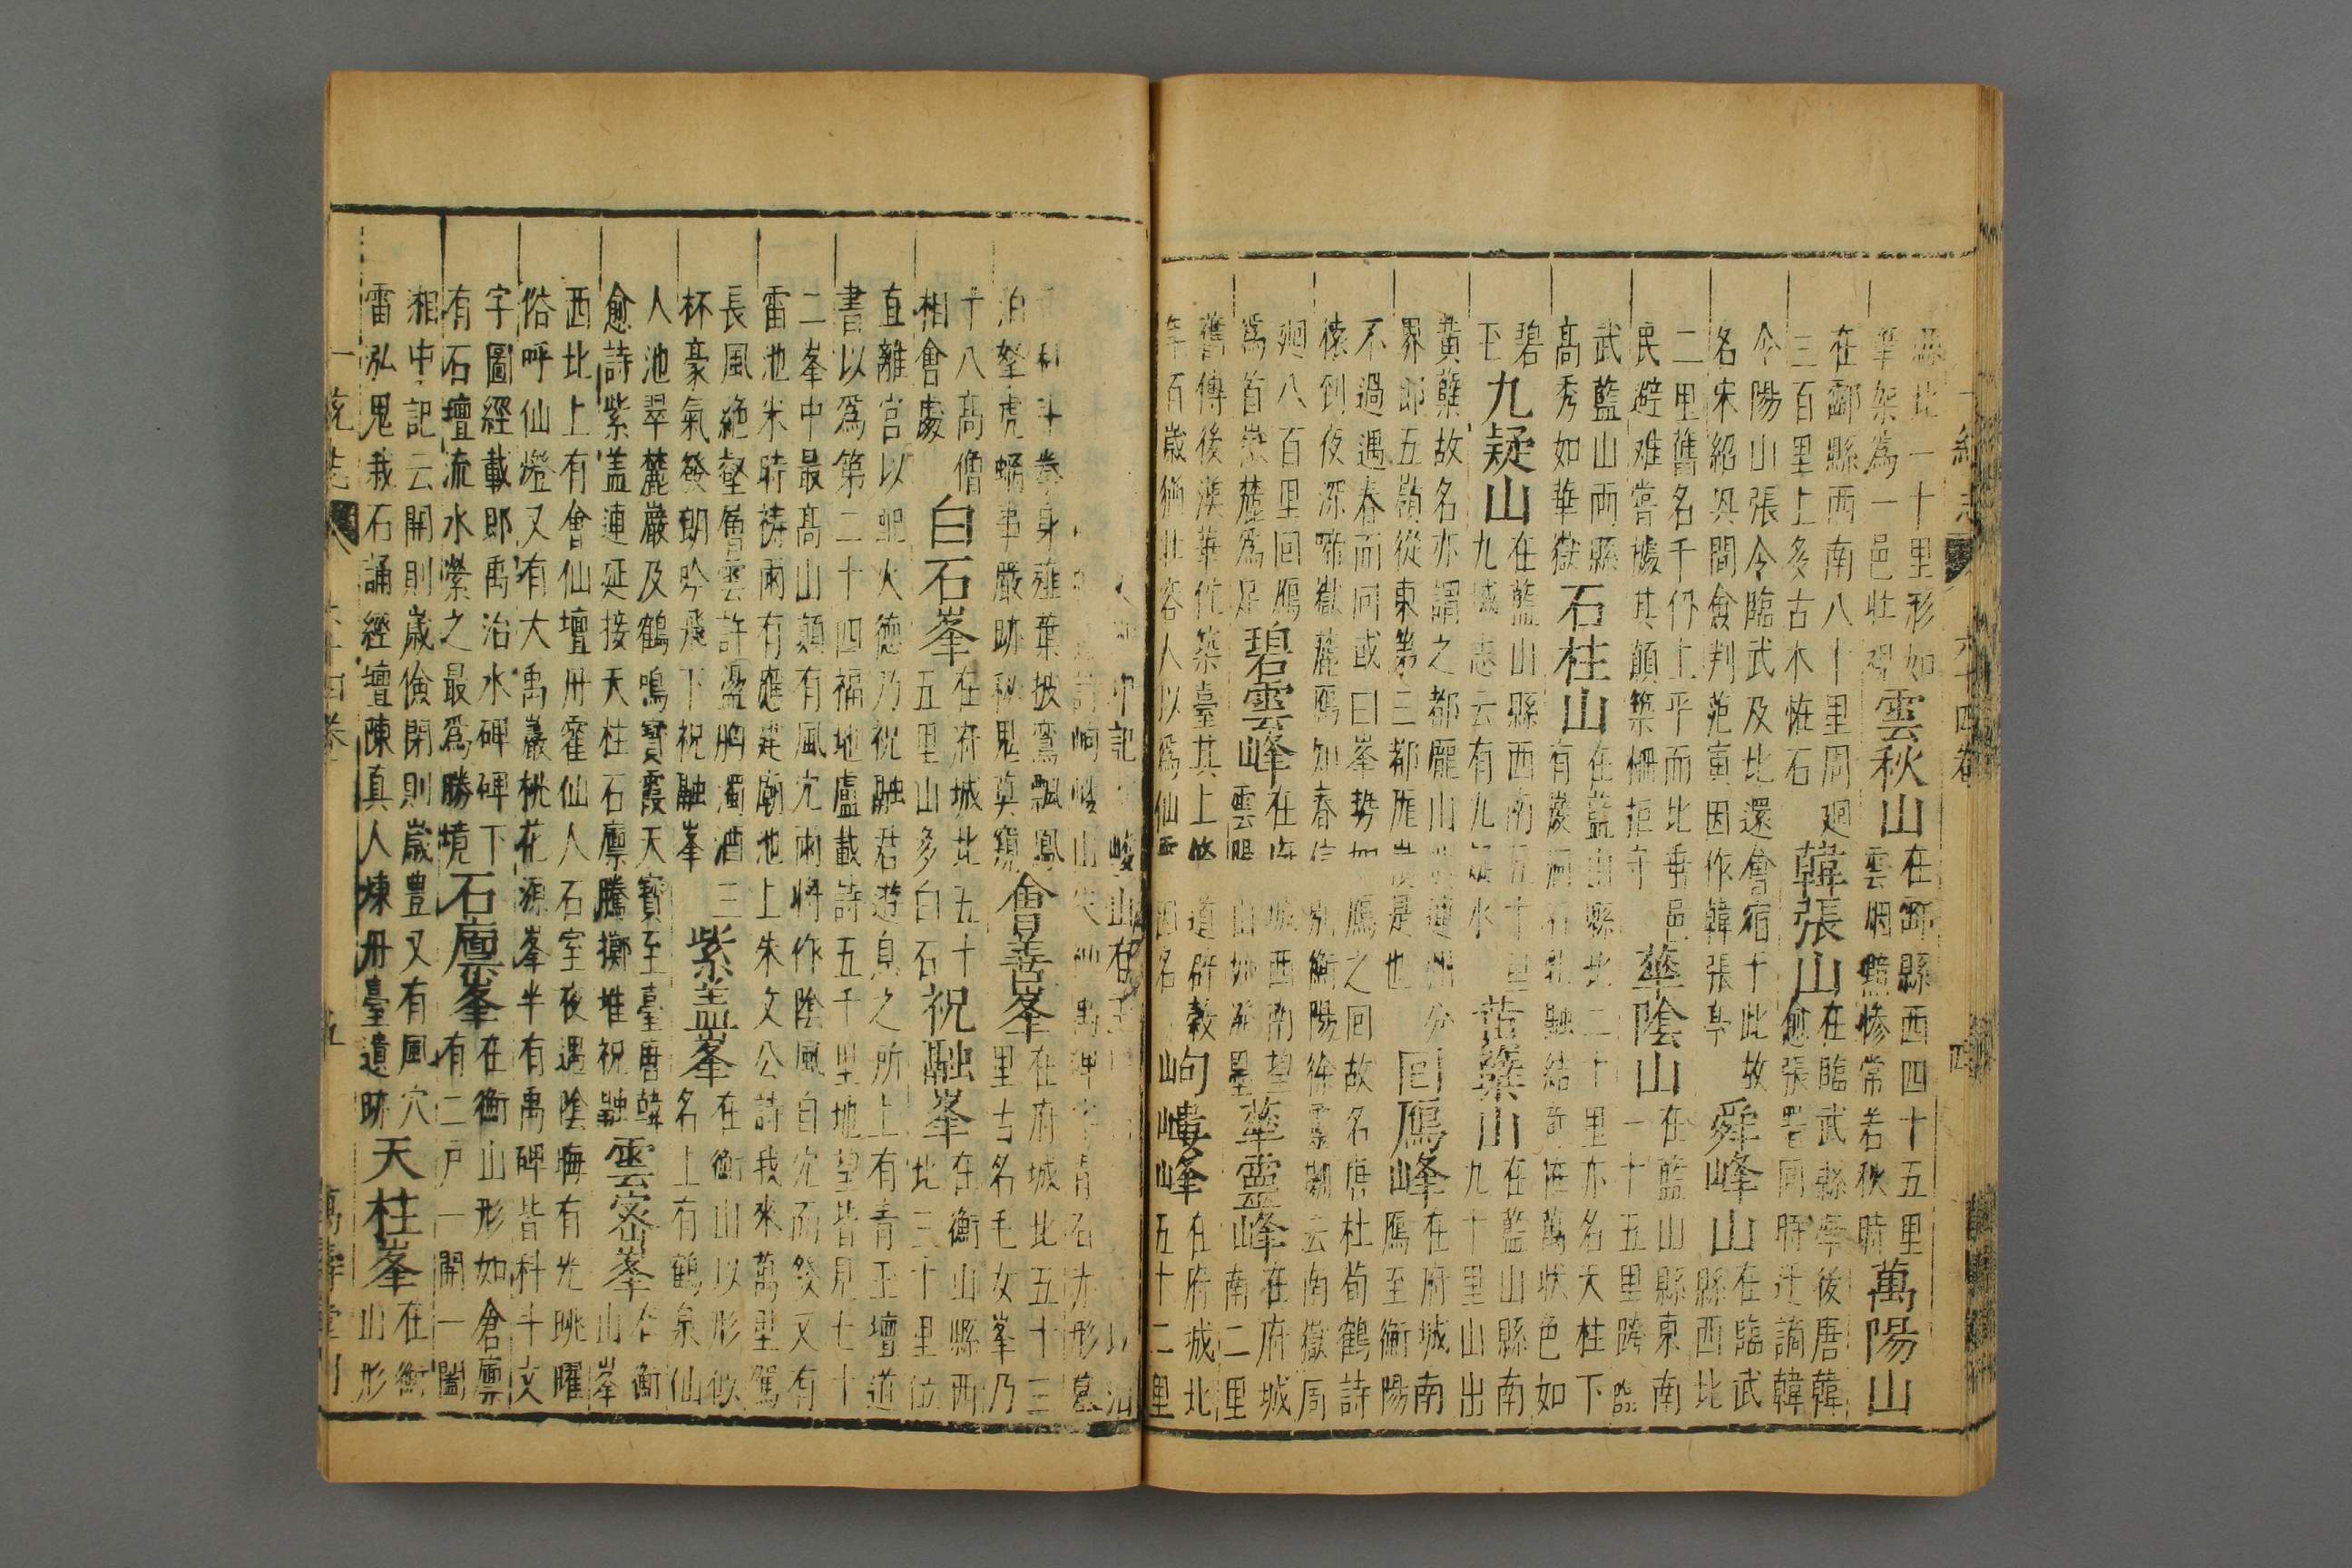 一統志 六十四卷 四
縣北一十里形如筆架為一邑壯觀 雲秋山 在酃縣西四十五里雲烟黯慘常若秋時 萬陽山
在酃縣西南八十里周廻三百里上多古木恠石 韓張山 在臨武縣學後唐韓愈張署同時迁謫韓
令陽山張令臨武及北還會宿于此故名宋紹興間僉判范寅因作韓張亭 舜峰山 在臨武縣西北
二里舊名千仞上平而北垂邑民避难嘗據其顛築柵拒守 華陰山 在藍山縣東南一十五里跨臨
武藍山兩縣高秀如華嶽 石柱山 在藍山縣北二十里亦名天柱下有巖洞石乳融結奇恠萬狀色如
碧玉 九疑山 在藍山縣西南五十里九域志云有九疑水 黄蘗山 在藍山縣南九十里山出
黄蘗故名亦謂之都龐山與連州分界即五嶺從東第三都龐嶺是也 回鴈峰 在府城南鴈至衡陽
不過遇春而回或曰峯势如鴈之回故名唐杜荀鶴詩猿到夜深啼嶽麓鴈知春信別衡陽徐霊期云南嶽周
廻八百里回鴈為首嶽麓為足 碧雲峰 在府城西南望雲陽山 華靈峰 在府城南二里
舊傳後漢華佗築臺其上修道辟穀年百歲猶壯容人以為仙因名 岣嶁峰 在府城北五十二里
科斗拳身薤葉披鸞飄鳳泊拏虎螭事嚴跡秘鬼莫窺 會善峯 在府城北五十三里古名毛女峯乃
十八高僧相會處 白石峯 在府城北五十五里山多白石 祝融峯 在衡山縣西北三十里位
直離宮以配火德乃祝融君遊息之所上有青玉壇道書以為第二十四福地盧載詩五千里地望皆見七十
二峯中最高山顛有風穴雨將作陰風自穴而發又有雷池水時禱雨有應建廟池上朱文公詩我來萬里駕
長風絶壑層雲許盪胸濁酒三杯豪氣發朗吟飛下祝融峯 紫盖峯 在衡山以形似名上有鶴泉仙
人池翠麓巖及鶴鳴寳霞天寳至臺唐韓愈詩紫盖連延接天柱石廪騰擲堆祝融 雲密峯 在衡山峯
西北上有會仙壇丹竈仙人石室夜遇陰晦有光眺曜俗呼仙燈又有大禹巖桃花源峯半有禹碑皆科斗文
字圖經載即禹治水碑碑下有石壇流水縈之最為勝境 石廪峯 在衡山形如倉廪有二户一開一闔
湘中記云開則歲儉閉則歲豊又有風穴雷泓鬼栽石誦經壇陳真人煉丹臺遺跡 天柱峯 在衡山形
一統志 六十四卷 五 萬壽堂刊